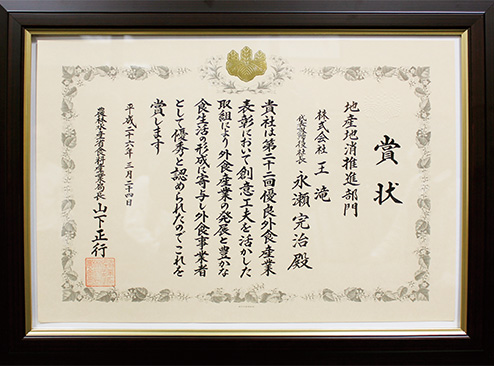 賞状
地産地消推進部門
株式会社 王滝
代表取締役社長 永瀬完治殿
貴社は第二十二回優良外食産業
表彰において創意工夫を活かした
取組により外食産業の発展と豊かな
食生活の形成に寄与し外食事業者
として優秀と認められたのでこれを
賞します
平成二十六年三月二十四日
農林水産省食料産業局長 山下正行